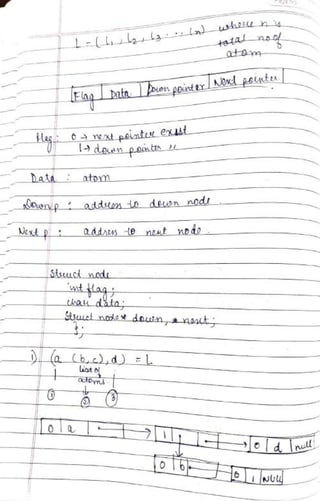 L = (l1, l2, l3 ... ln) where n is
total no of
atom
Flag | Data | Down pointer | Next pointer
Flag : 0 → next pointer exist
1 → down pointer "
Data : atom
Down p : address to down node.
Next p : address to next node.
Struct node
int flag;
char data;
Struct node* down, * next;
};
1) (a (b, c), d) = L
list of
atoms
① ② ③
0 | a | → 1 | | → 0 | d | null
0 | b | 0 | | NULL